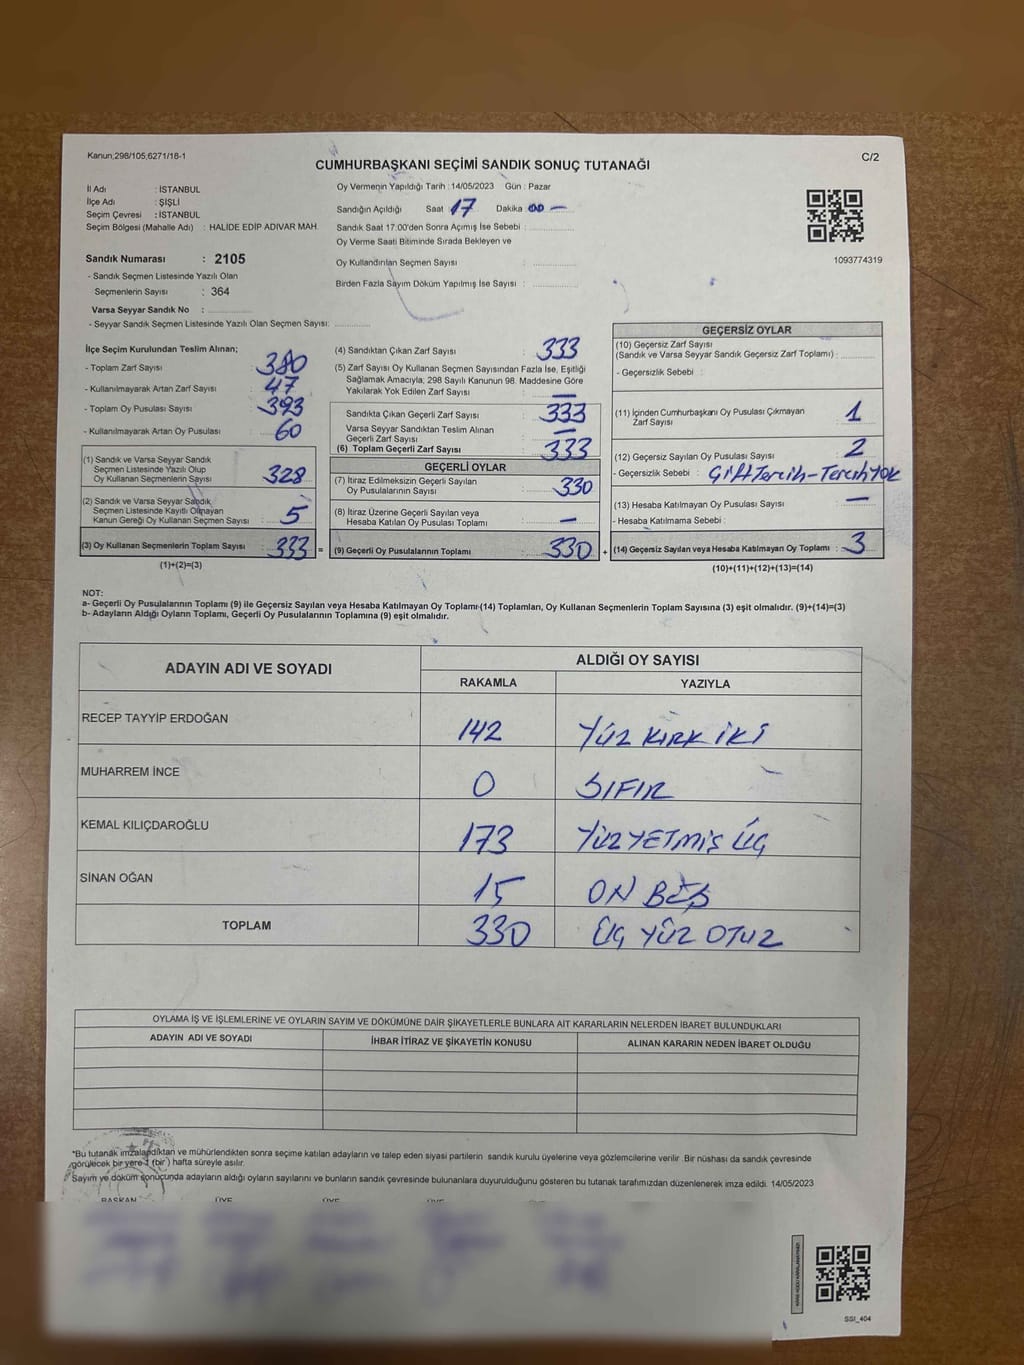 Kanun,298/105,6271/18-1
CUMHURBAŞKANI SEÇİMİ SANDIK SONUÇ TUTANAĞI
C/2
İl Adı : İSTANBUL
İlçe Adı : ŞİŞLİ
Seçim Çevresi : İSTANBUL
Seçim Bölgesi (Mahalle Adı) : HALİDE EDİP ADIVAR MAH.
Oy Vermenin Yapıldığı Tarih : 14/05/2023 Gün : Pazar
Sandığın Açıldığı Saat 17 Dakika —
Sandık Saat 17.00'den Sonra Açımış İse Sebebi :
Oy Verme Saati Bitiminde Sırada Bekleyen ve
Oy Kullandırılan Seçmen Sayısı :
Birden Fazla Sayım Döküm Yapılmış İse Sayısı :
1093774319
Sandık Numarası : 2105
- Sandık Seçmen Listesinde Yazılı Olan
Seçmenlerin Sayısı : 364
Varsa Seyyar Sandık No :
- Seyyar Sandık Seçmen Listesinde Yazılı Olan Seçmen Sayısı:
İlçe Seçim Kurulundan Teslim Alınan;
- Toplam Zarf Sayısı : 380
- Kullanılmayarak Artan Zarf Sayısı : 47
- Toplam Oy Pusulası Sayısı : 393
- Kullanılmayarak Artan Oy Pusulası : 60
(1) Sandık ve Varsa Seyyar Sandık
Seçmen Listesinde Yazılı Olup
Oy Kullanan Seçmenlerin Sayısı : 328
(2) Sandık ve Varsa Seyyar Sandık
Seçmen Listesinde Kayıtlı Olmayan
Kanun Gereği Oy Kullanan Seçmen Sayısı : 5
(3) Oy Kullanan Seçmenlerin Toplam Sayısı : 333 =
(1)+(2)=(3)
(4) Sandıktan Çıkan Zarf Sayısı : 333
(5) Zarf Sayısı Oy Kullanan Seçmen Sayısından Fazla İse, Eşitliği
Sağlamak Amacıyla, 298 Sayılı Kanunun 98. Maddesine Göre
Yakılarak Yok Edilen Zarf Sayısı : —
Sandıkta Çıkan Geçerli Zarf Sayısı : 333
Varsa Seyyar Sandıktan Teslim Alınan
Geçerli Zarf Sayısı : —
(6) Toplam Geçerli Zarf Sayısı : 333
GEÇERLİ OYLAR
(7) İtiraz Edilmeksizin Geçerli Sayılan
Oy Pusulalarının Sayısı : 330
(8) İtiraz Üzerine Geçerli Sayılan veya
Hesaba Katılan Oy Pusulası Toplamı : —
(9) Geçerli Oy Pusulalarının Toplamı : 330 +
GEÇERSİZ OYLAR
(10) Geçersiz Zarf Sayısı
(Sandık ve Varsa Seyyar Sandık Geçersiz Zarf Toplamı) :
- Geçersizlik Sebebi :
(11) İçinden Cumhurbaşkanı Oy Pusulası Çıkmayan
Zarf Sayısı : 1
(12) Geçersiz Sayılan Oy Pusulası Sayısı : 2
- Geçersizlik Sebebi : Çift Tercih - Tercih YOK
(13) Hesaba Katılmayan Oy Pusulası Sayısı : —
- Hesaba Katılmama Sebebi :
(14) Geçersiz Sayılan veya Hesaba Katılmayan Oy Toplamı : 3
(10)+(11)+(12)+(13)=(14)
NOT:
a- Geçerli Oy Pusulalarının Toplamı (9) ile Geçersiz Sayılan veya Hesaba Katılmayan Oy Toplamı (14) Toplamları, Oy Kullanan Seçmenlerin Toplam Sayısına (3) eşit olmalıdır. (9)+(14)=(3)
b- Adayların Aldığı Oyların Toplamı, Geçerli Oy Pusulalarının Toplamına (9) eşit olmalıdır.
ADAYIN ADI VE SOYADI
ALDIĞI OY SAYISI
RAKAMLA YAZIYLA
RECEP TAYYİP ERDOĞAN 142 YÜZ KIRK İKİ
MUHARREM İNCE 0 SIFIR
KEMAL KILIÇDAROĞLU 173 YÜZ YETMİŞ ÜÇ
SİNAN OĞAN 15 ON BEŞ
TOPLAM 330 ÜÇ YÜZ OTUZ
OYLAMA İŞ VE İŞLEMLERİNE VE OYLARIN SAYIM VE DÖKÜMÜNE DAİR ŞİKAYETLERLE BUNLARA AİT KARARLARIN NELERDEN İBARET BULUNDUKLARI
ADAYIN ADI VE SOYADI İHBAR İTİRAZ VE ŞİKAYETİN KONUSU ALINAN KARARIN NEDEN İBARET OLDUĞU
*Bu tutanak imzalandıktan ve mühürlendikten sonra seçime katılan adayların ve talep eden siyasi partilerin sandık kurulu üyelerine veya gözlemcilerine verilir. Bir nüshası da sandık çevresinde
görülecek bir yere 1 (bir) hafta süreyle asılır.
Sayım ve döküm sonucunda adayların aldığı oyların sayılarını ve bunların sandık çevresinde bulunanlara duyurulduğunu gösteren bu tutanak tarafımızdan düzenlenerek imza edildi. 14/05/2023
BAŞKAN ÜYE ÜYE ÜYE ÜYE
SSI_404